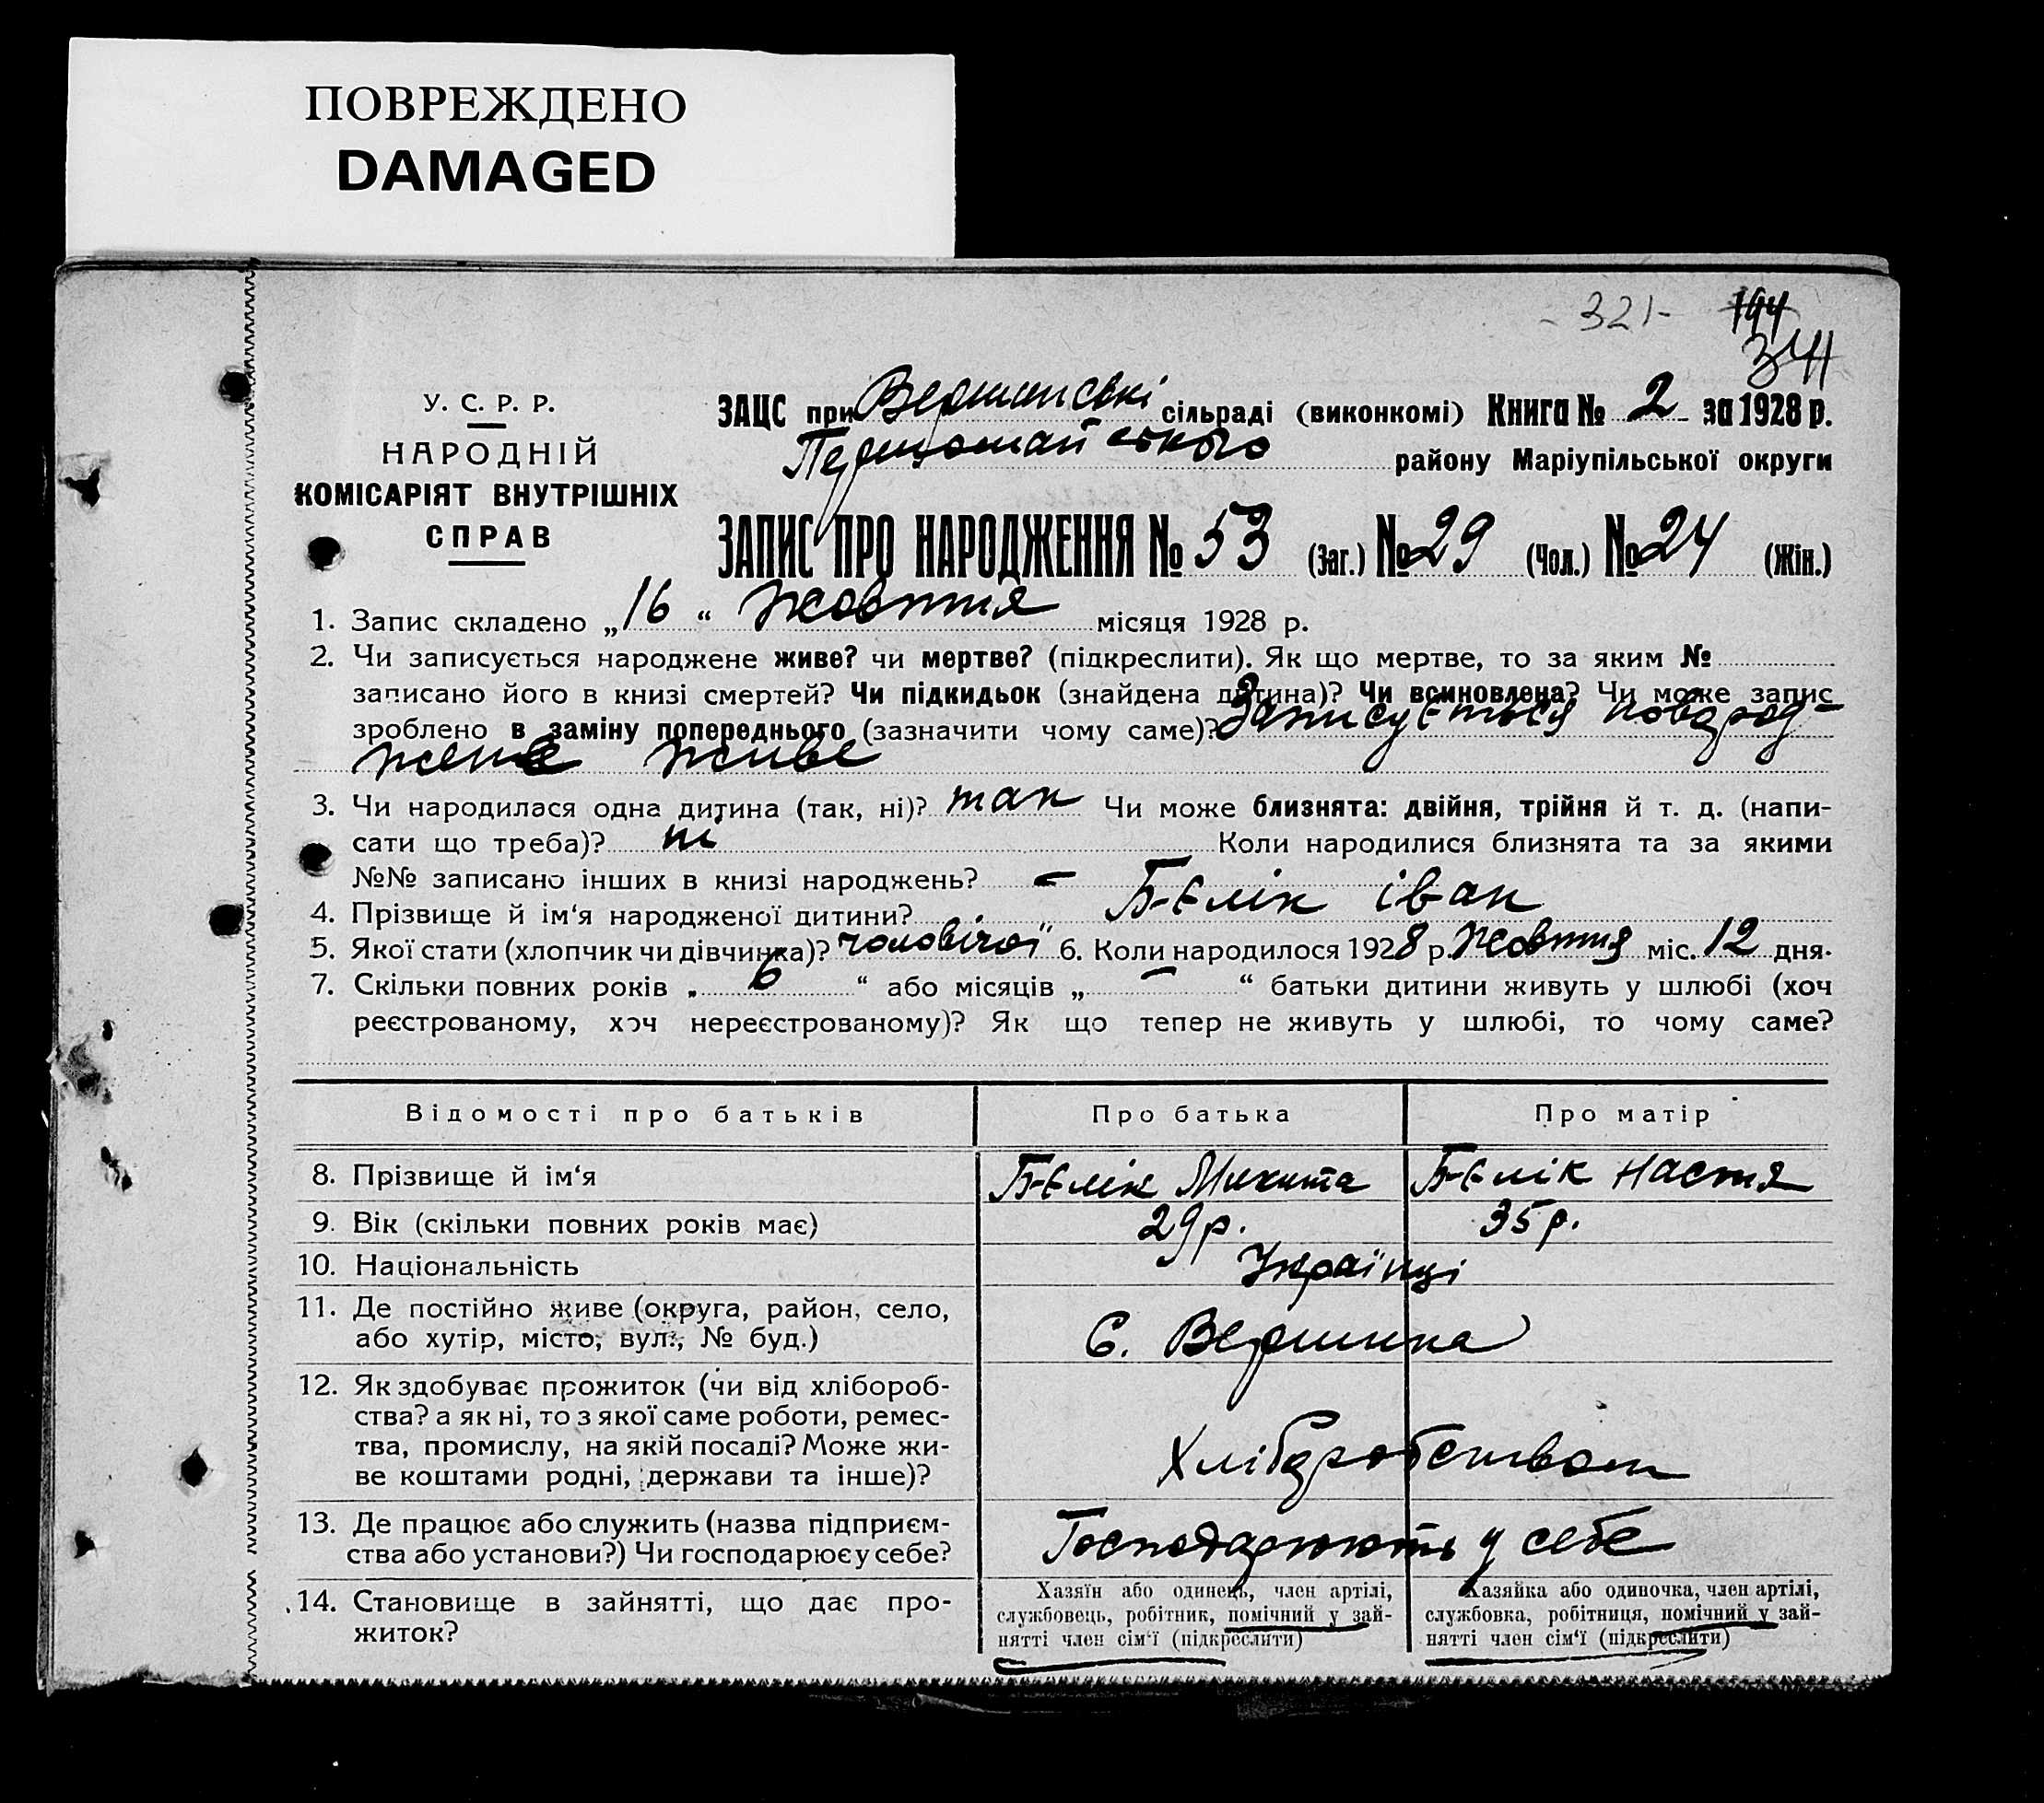 ПОВРЕЖДЕНО
DAMAGED
- 321 - 194
341
У. С. Р. Р.
НАРОДНІЙ
КОМІСАРІЯТ ВНУТРІШНІХ
СПРАВ
ЗАЦС при Вершинські сільраді (виконкомі) Книга № 2 за 1928 р.
Першомайського району Маріупільської округи
ЗАПИС ПРО НАРОДЖЕННЯ № 53 (Заг.) № 29 (Чол.) № 24 (Жін.)
1. Запис складено „16“ Жовтня місяця 1928 р.
2. Чи записується народжене живе? чи мертве? (підкреслити). Як що мертве, то за яким №
записано його в книзі смертей? Чи підкидьок (знайдена дитина)? Чи всиновлена? Чи може запис
зроблено в заміну попереднього (зазначити чому саме)? Записується
живе
3. Чи народилася одна дитина (так, ні)? так Чи може близнята: двійня, трійня й т. д. (напи-
сати що треба)? ні Коли народилися близнята та за якими
№№ записано інших в книзі народжень? -
4. Прізвище й ім‘я народженої дитини? Б-єлік іван
5. Якої стати (хлопчик чи дівчинка)? чоловічої 6. Коли народилося 1928 р. Жовтня міс. 12 дня.
7. Скільки повних років „ 6 “ або місяців „ — “ батьки дитини живуть у шлюбі (хоч
реєстрованому, хоч нереєстрованому)? Як що тепер не живуть у шлюбі, то чому саме?
Відомості про батьків Про батька Про матір
8. Прізвище й ім‘я Б-єлік Микита Б-єлік Настя
9. Вік (скільки повних років має) 29 р. 35 р.
10. Національність Українці
11. Де постійно живе (округа, район, село,
або хутір, місто, вул., № буд.) С. Вершина
12. Як здобуває прожиток (чи від хлібороб-
ства? а як ні, то з якої саме роботи, ремес-
тва, промислу, на якій посаді? Може жи-
ве коштами родні, держави та інше)? Хліборобством
13. Де працює або служить (назва підприєм-
ства або установи?) Чи господарює у себе? Господарюють у себе
14. Становище в зайнятті, що дає про-
житок?
Хазяїн або одинець, член артілі,
службовець, робітник, помічний у зай-
нятті член сім‘ї (підкреслити)
Хазяйка або одиночка, член артілі,
службовка, робітниця, помічний у зай-
нятті член сім‘ї (підкреслити)